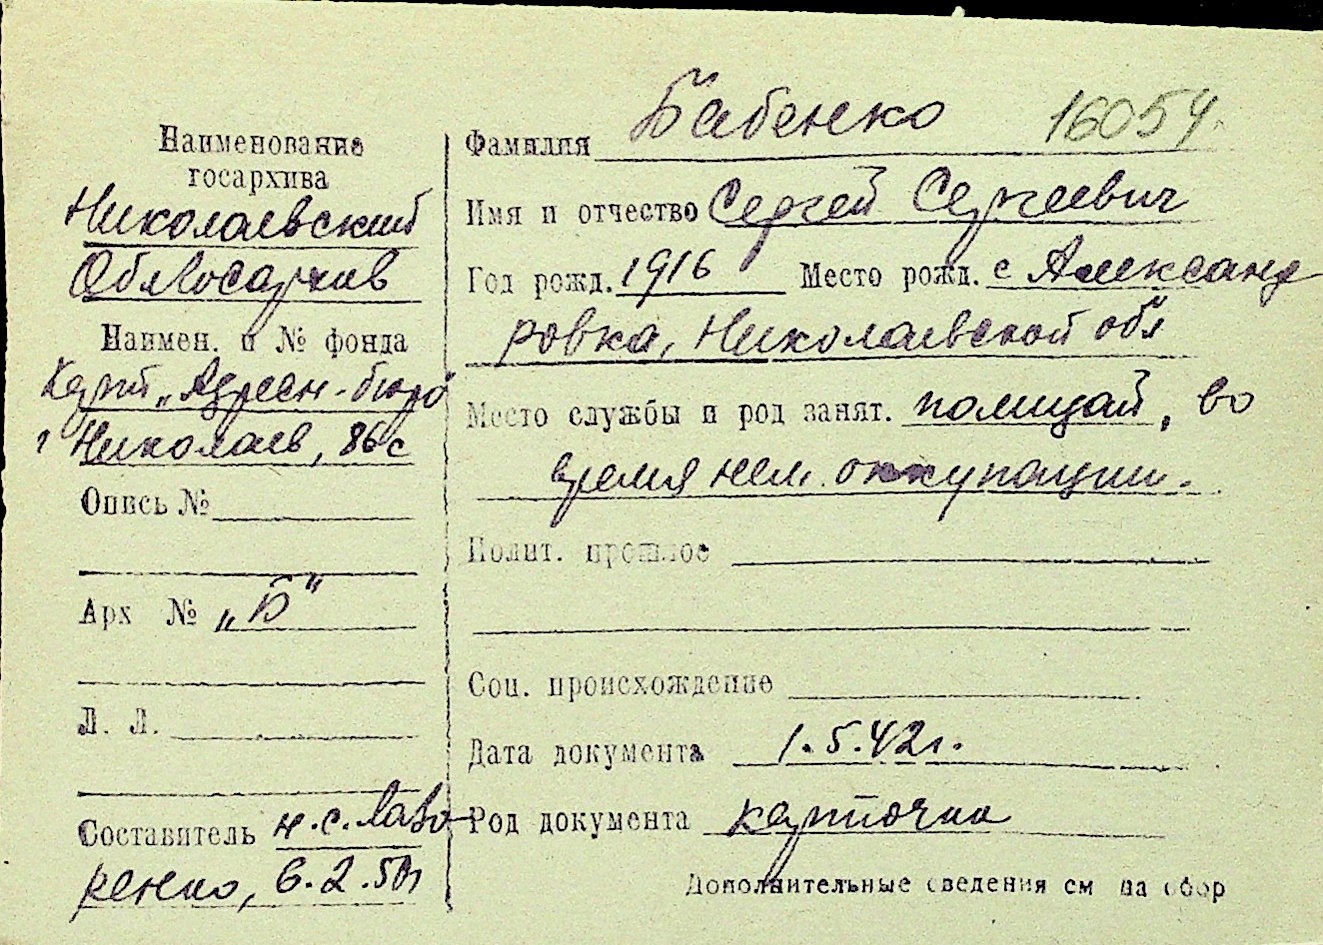 Наименование
госархива
Николаевский
Облгосархив
Наимен. и № фонда
Карт „Адресн-бюро"
г Николаев, 86с
Опись №
Арх № „Б"
Л. Л.
Составитель н.с. Лаво-
ренко, 6.2.50г
Фамилия Бабенко 16054
Имя и отчество Сергей Сергеевич
Год рожд. 1916 Место рожд. с Александ
ровка, Николаевской обл
Место службы и род занят. полицай, во
время нем. оккупации.
Полит. прошлое
Соц. происхождение
Дата документа 1.5.42г.
Род документа карточка
Дополнительные сведения см на обор